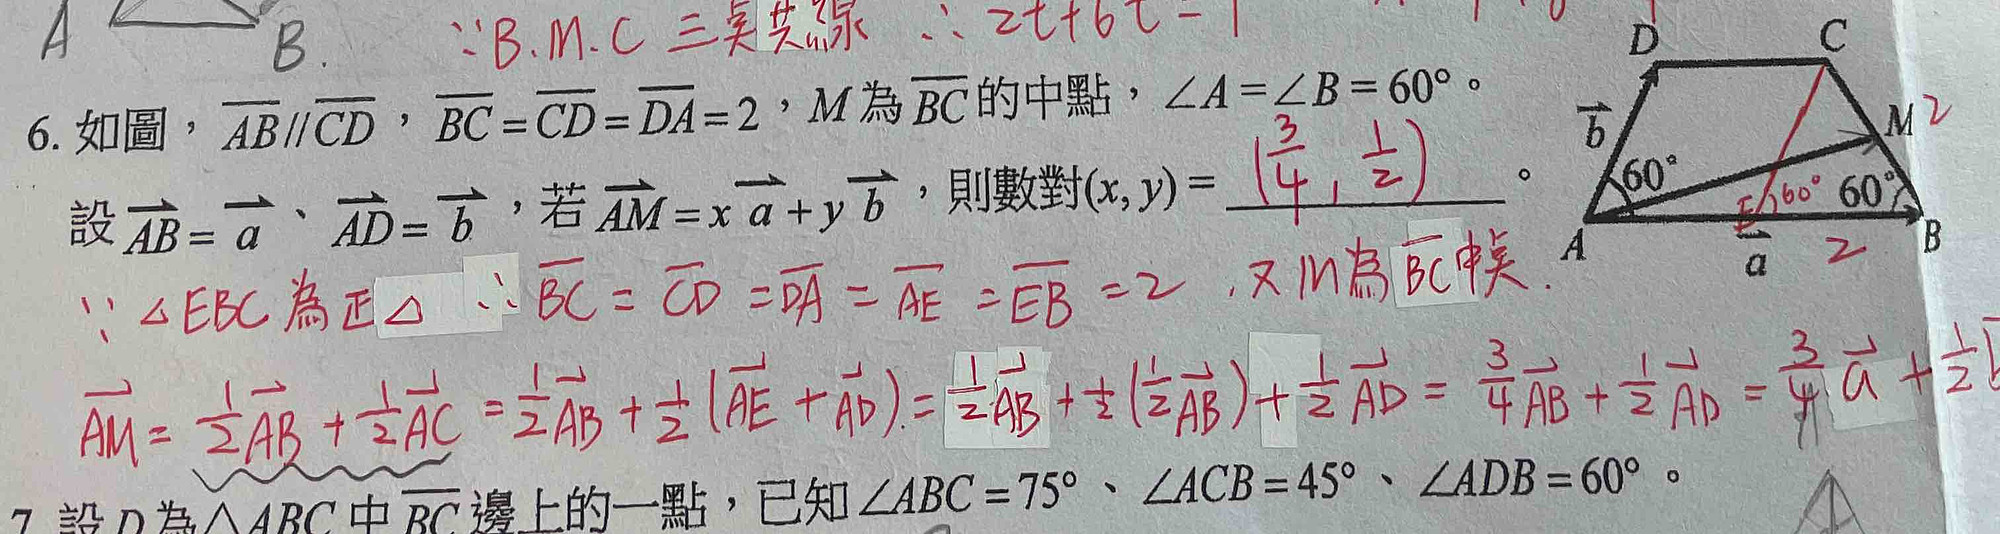 A B.
∵B.M.C 三點共線 ∴ 2t+6t=1
6. 如圖，\overline{AB}//\overline{CD}，\overline{BC}=\overline{CD}=\overline{DA}=2，M為\overline{BC}的中點，∠A=∠B=60°。
設\overrightarrow{AB}=\overrightarrow{a}、\overrightarrow{AD}=\overrightarrow{b}，若\overrightarrow{AM}=x\overrightarrow{a}+y\overrightarrow{b}，則數對(x, y)= (\frac{3}{4}, \frac{1}{2}) 。
D C
\overrightarrow{b} M 2
60° E 60° 60°
A \overrightarrow{a} 2 B
∵ △EBC 為正△ ∴ \overline{BC} = \overline{CD} = \overline{DA} = \overline{AE} = \overline{EB} = 2 , 又M為\overline{BC}中點.
\overrightarrow{AM} = \frac{1}{2}\overrightarrow{AB} + \frac{1}{2}\overrightarrow{AC} = \frac{1}{2}\overrightarrow{AB} + \frac{1}{2}(\overrightarrow{AE} + \overrightarrow{AD}) = \frac{1}{2}\overrightarrow{AB} + \frac{1}{2}(\frac{1}{2}\overrightarrow{AB}) + \frac{1}{2}\overrightarrow{AD} = \frac{3}{4}\overrightarrow{AB} + \frac{1}{2}\overrightarrow{AD} = \frac{3}{4}\overrightarrow{a} + \frac{1}{2}
7. 設D為△ABC中\overline{BC}邊上的一點，已知∠ABC=75°、∠ACB=45°、∠ADB=60°。